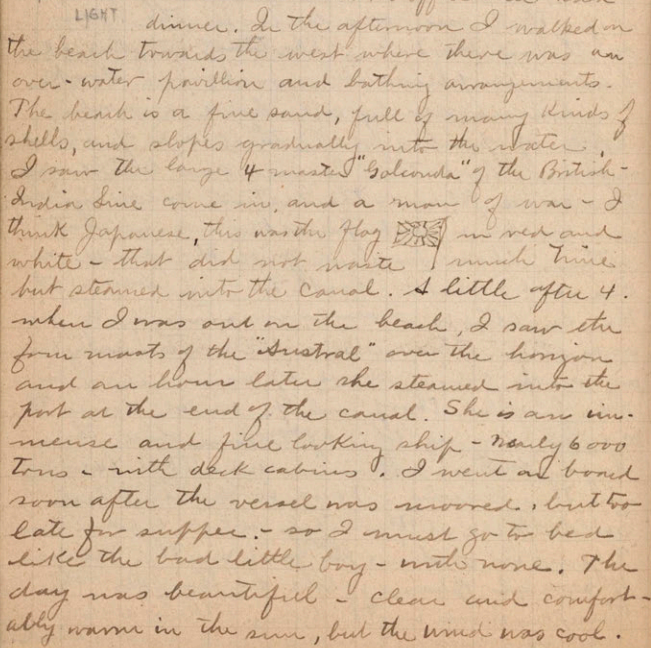 LIGHT
dinner. In the afternoon I walked on
the beach towards the west where there was an
over-water pavillion and bathing arrangements.
The beach is a fine sand, full of many kinds of
shells, and slopes gradually into the water.
I saw the large 4 master "Golconda" of the British-
India Line come in, and a man of war - I
think Japanese, this was the flag in red and
white - that did not waste much time
but steamed into the canal. A little after 4.
when I was out on the beach, I saw the
four masts of the "Austral" over the horizon
and an hour later she steamed into the
port at the end of the canal. She is an im-
mense and fine looking ship - nearly 6000
tons - with deck cabins. I went on board
soon after the vessel was moored, but too
late for supper. - so I must go to bed
like the bad little boy - with none. The
day was beautiful - clear and comfort-
ably warm in the sun, but the wind was cool.